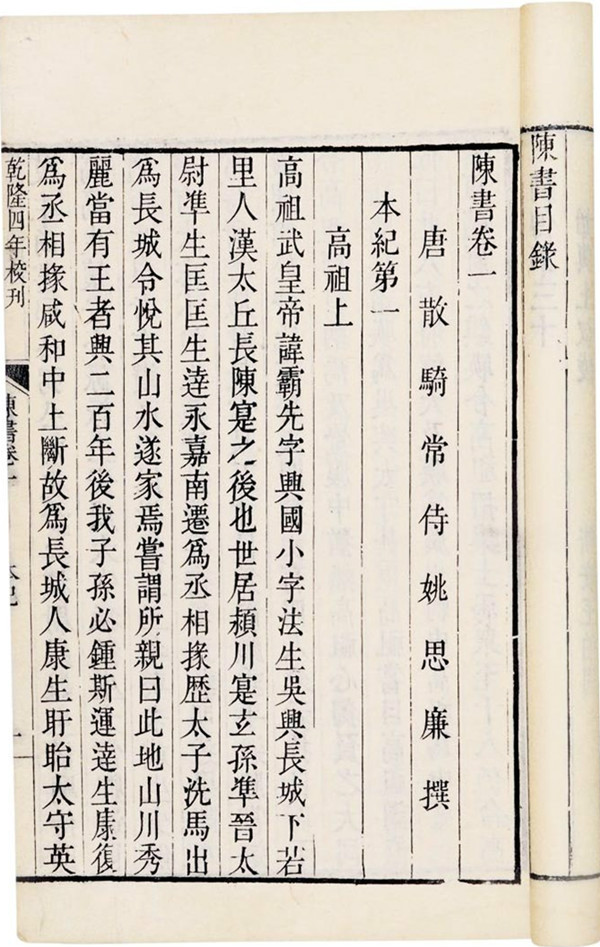 陳書目錄
陳書卷一
唐散騎常侍姚思廉撰
本紀第一
高祖上
高祖武皇帝諱霸先字興國小字法生吳興長城下若
里人漢太丘長陳寔之後也世居潁川寔玄孫準晉太
尉準生匡匡生達永嘉南遷爲丞相掾歷太子洗馬出
爲長城令悅其山水遂家焉嘗謂所親曰此地山川秀
麗當有王者興二百年後我子孫必鍾斯運達生康復
爲丞相掾咸和中土斷故爲長城人康生盱眙太守英
乾隆四年校刊
陳書卷一
本紀
一